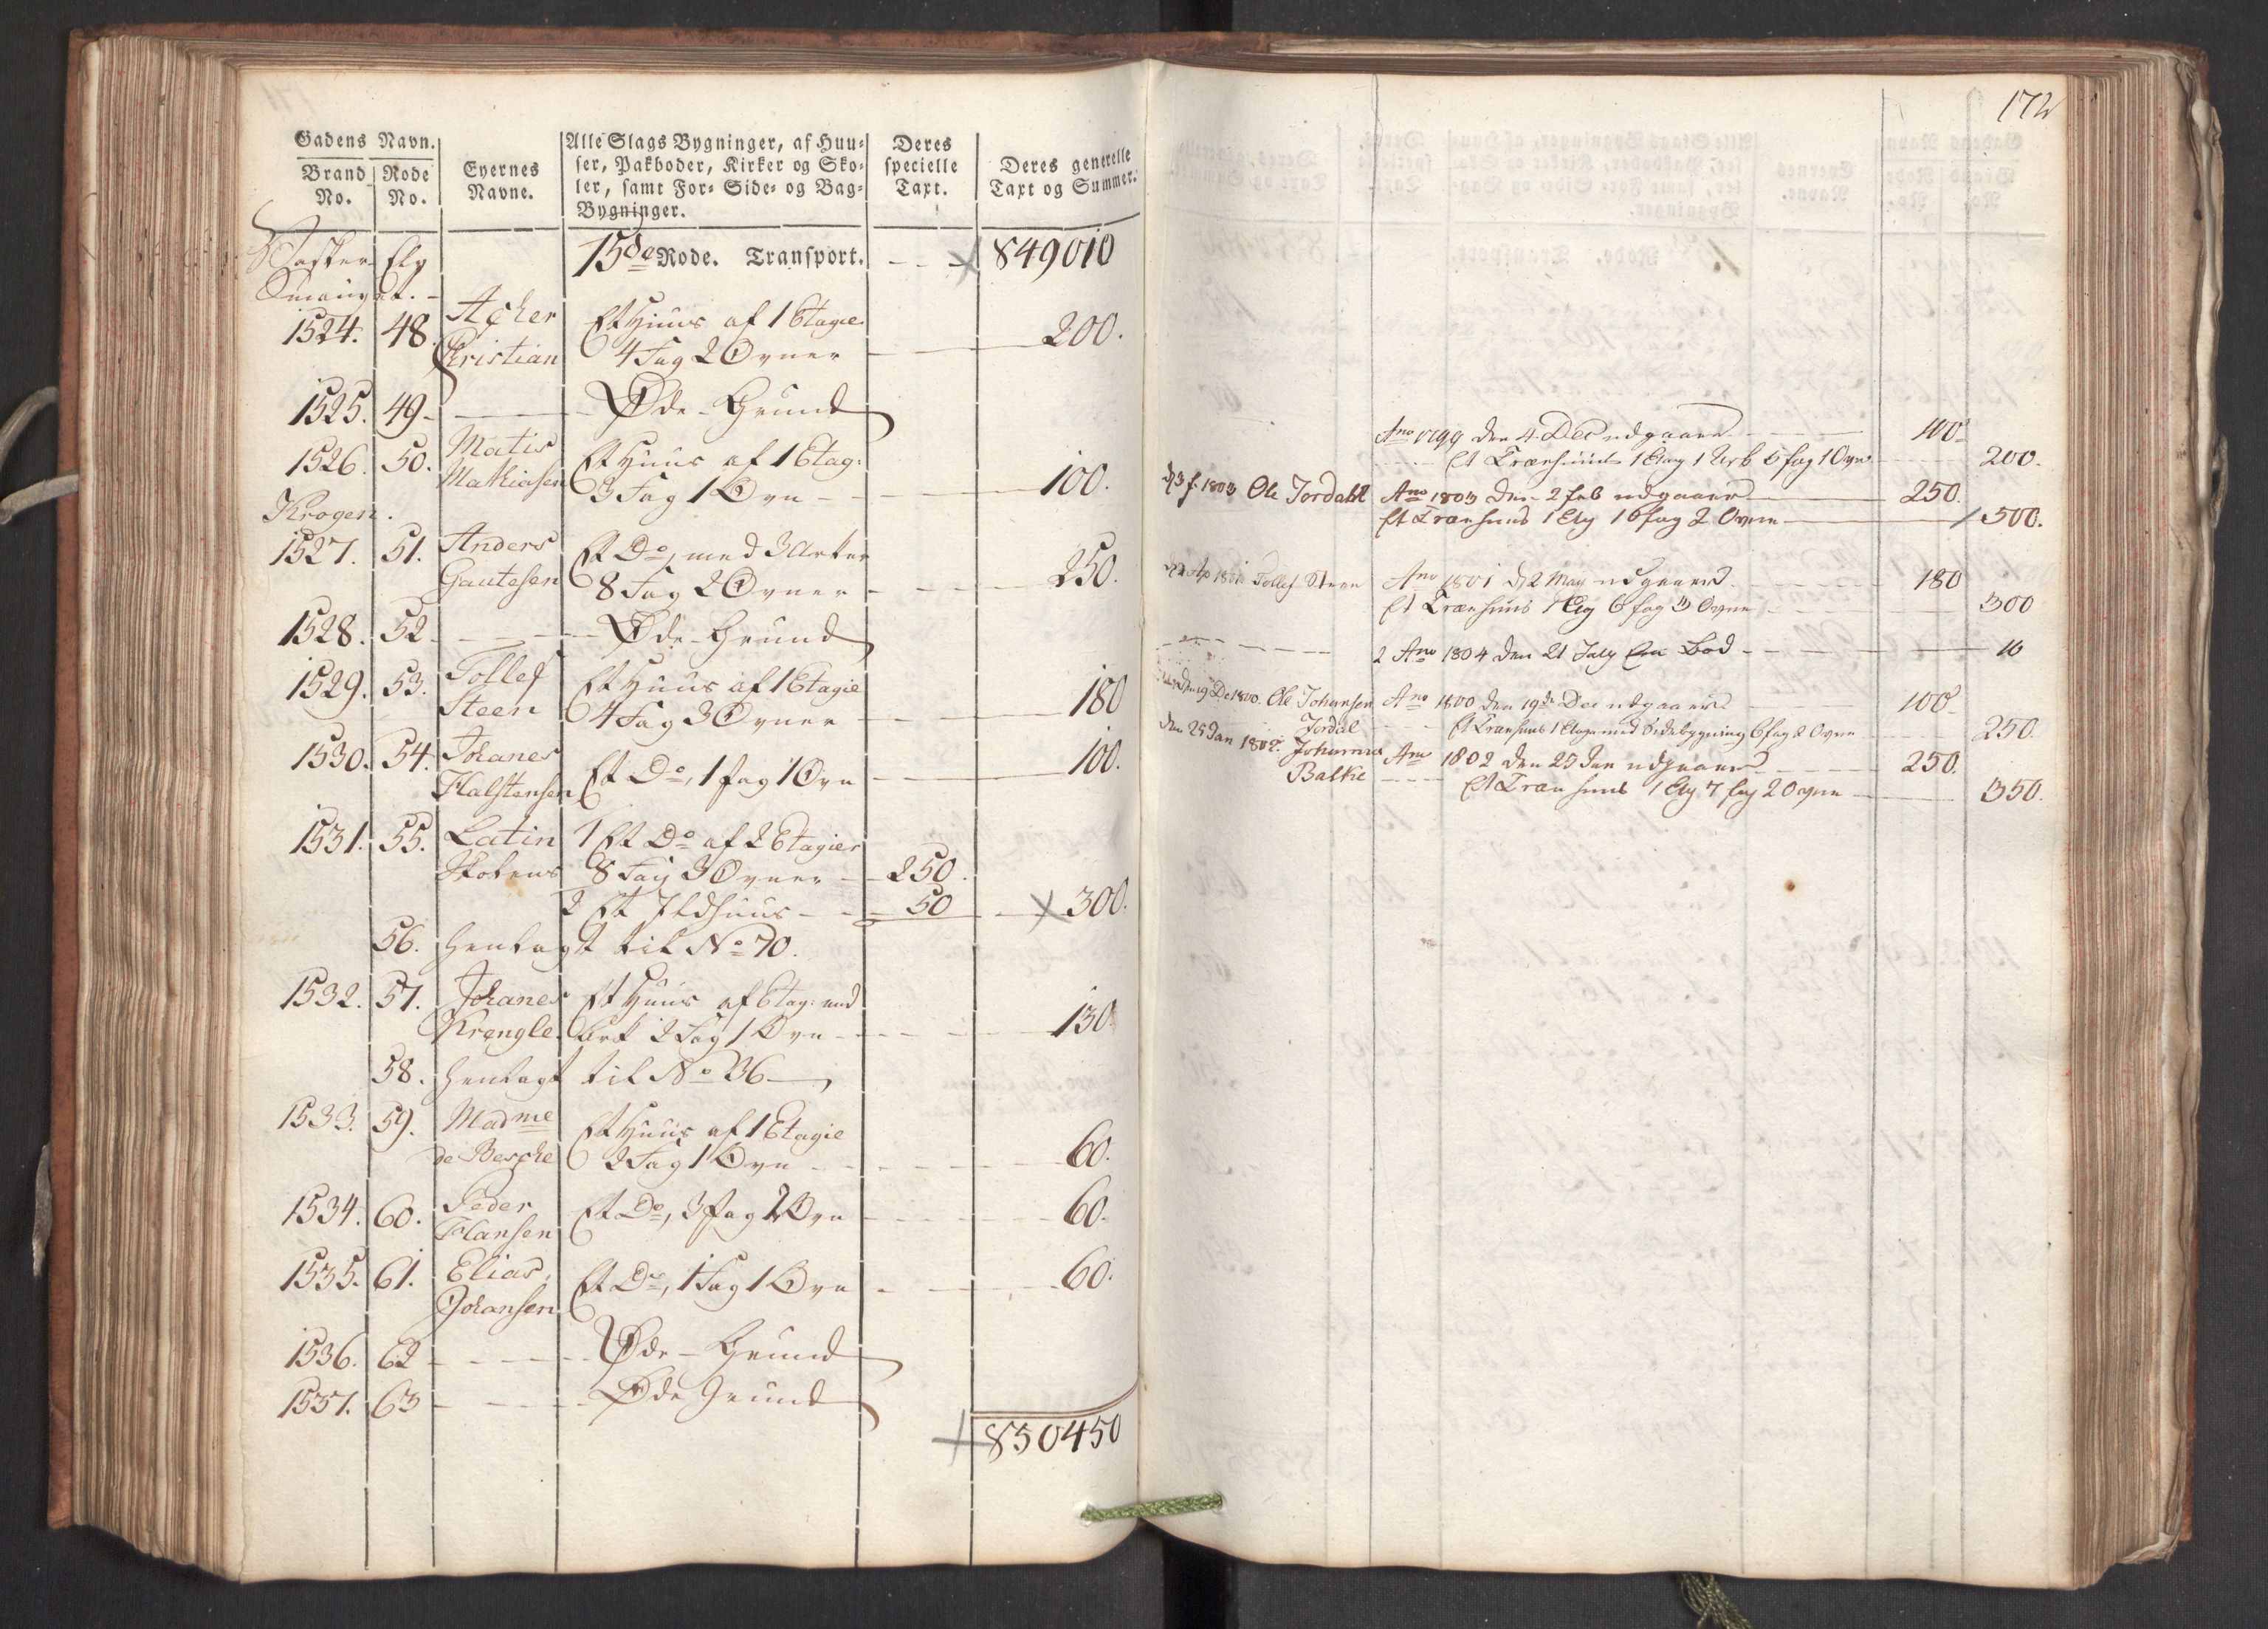 Gadens Navn.
Brand No. Rode No. Eyernes Navne. Alle Slags Bygninger, af Huuser, Pakboder, Kirker og Skoler, samt For- Side- og Bag-Bygninger. Deres specielle Taxt. Deres generelle Taxt og Summer.
15de Rode. Transport. 849010
Smauget.
1524. 48. Acher Et Huus af 1 Etagie
Christian 4 Fag 2 Ovner 200.
1525. 49 Øde-Grund
1526. 50. Matis Et Huus af 1 Etag:
Mathiasen 3 Fag 1 Ovn 100.
Krogen.
1527. 51. Anders Et Do, med 3 Arker
Gautesen 8 Fag 2 Ovner 250.
1528. 52 Øde-Grund
1529. 53. Tollef Et Huus af 1 Etagie
Steen 4 Fag 3 Ovner 180
1530. 54. Johanes
Halstensen Et Do, 1 fag 1 Ovn 100.
1531. 55. Latin 1 Et Do af 2 Etagier
Skolens 8 Fag 3 Ovner 250.
2 Et Ildhuus 50 300.
56. henlagt til No 70.
1532. 57. Johanes Et Huus af Etag: med
Krengle Ark 2 Fag 1 Ovn 130.
58. henlagt til No 36
1533. 59. Madme Et Huus af 1 Etagie
de Besche 2 Fag 1 Ovn 60.
1534. 60. Peder Et Do, 3 fag 2 Ovn 60.
Hansen
1535. 61. Elias Et Do, 1 Fag 1 Ovn 60.
Johansen
1536. 62 Øde-Grund
1537. 63 Øde Grund
850450
172
Ano 1799 den 4 Dec udgaaer 100
Et Træehuus 1 Etag 1 Ark 6 fag 1 Ovn 200.
d 3 f 1803 Ole Jordahl Ano 1803 den 2 feb udgaaer 250.
Et Træehuus 1 Etg 16 fag 2 Ovne 500.
Ap 1801 Tollef Steen Ano 1801 d 2 May udgaaer 180
Et Træehuus 1 Etg 6 fag 3 Ovne 300
2 Ano 1804 den 21 July En Bod 10
19 De 1800. Ole Johansen Ano 1800 den 19de Dec udgaaer 100
Jordal Et Træehuus 1 Etage med Sidebygning 6 fag 2 Ovne 250.
den 25 Jan 1802. Johannes Ano 1802 den 25 Jan udgaaer 250.
Balke Et Træehuus 1 Etg 7 fag 2 Ovne 350.